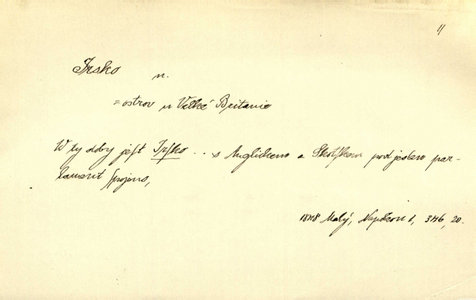 11
Irsko n.
= ostrov u Velké Britanie
W ty doby jest Irsko ... s Anglickem a Skotskem pod jedno par-
lament spojeno,
1848 Malý, Napoleon 1, 346, 20.